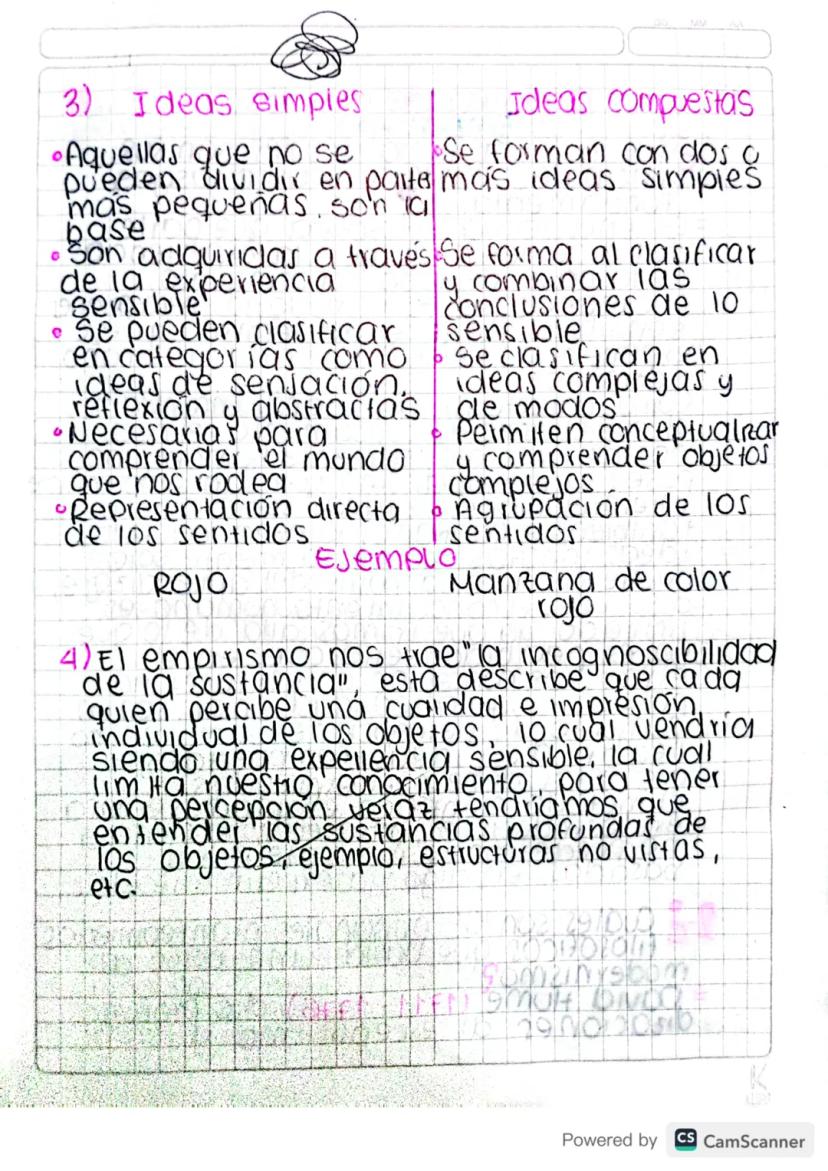 3) Ideas simples
• Aquellas que no se
pueden dividir en partes
más pequeñas, son la
base
• Son adquiridas a través
de la experiencia
sensible
• Se pueden clasificar
en categorías como
ideas de sensación,
reflexión y abstractas
• Necesarias para
comprender el mundo
que nos rodea
• Representación directa
de los sentidos
Ideas compuestas
• Se forman con dos o
más ideas simples
• Se forma al clasificar
y combinar las
conclusiones de lo
sensible
• Se clasifican en
ideas complejas y
de modos
• Permiten conceptualizar
y comprender objetos
complejos.
• Agrupación de los
sentidos
Ejemplo
Rojo
Manzana de color
rojo
4) El empirismo nos trae "la incognoscibilidad
de la sustancia", esta describe que cada
quien percibe una cualidad e impresión
individual de los objetos, lo cual vendría
siendo una experiencia sensible, la cual
limita nuestro conocimiento, para tener
una percepción veraz tendríamos que
entender las sustancias profundas de
los objetos, ejemplo, estructuras no vistas,
etc.
Powered by CS CamScanner